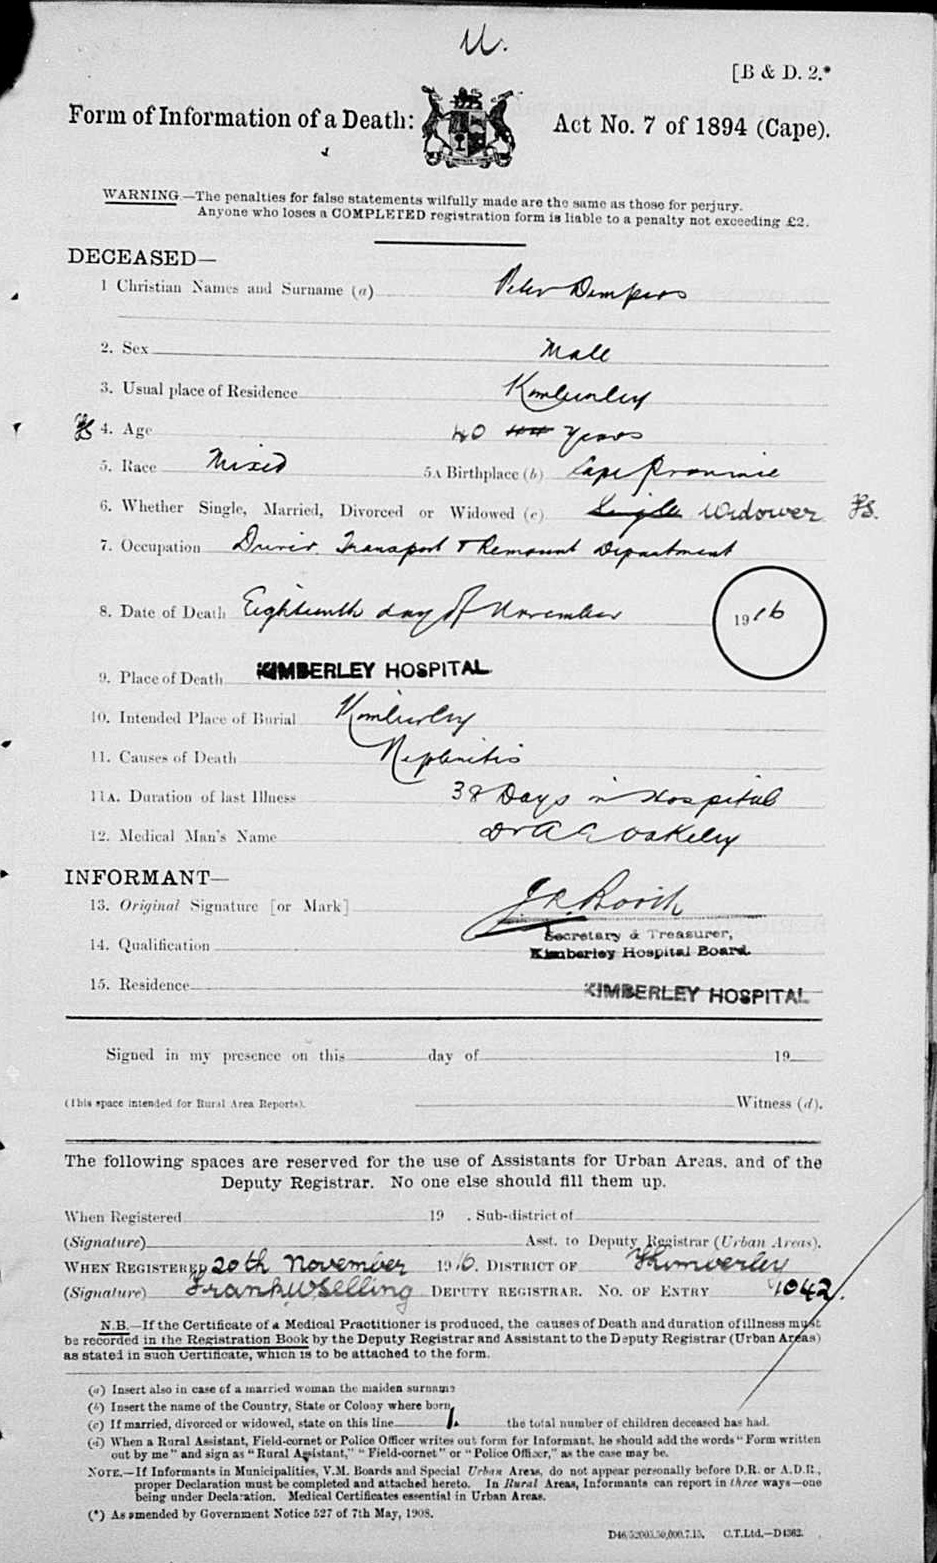 U.
[B & D. 2.*
Form of Information of a Death: Act No. 7 of 1894 (Cape).
WARNING.—The penalties for false statements wilfully made are the same as those for perjury.
Anyone who loses a COMPLETED registration form is liable to a penalty not exceeding £2.
DECEASED—
1 Christian Names and Surname (a) Peter Dempers
2. Sex Male
3. Usual place of Residence Kimberley
FS 4. Age 40 Years
5. Race Mixed 5A Birthplace (b) Cape Province
6. Whether Single, Married, Divorced or Widowed (c) Single Widower FS.
7. Occupation Driver Transport & Remount Department
8. Date of Death Eighteenth day of November 1916
9. Place of Death KIMBERLEY HOSPITAL
10. Intended Place of Burial Kimberley
11. Causes of Death Nephritis
11A. Duration of last Illness 38 Days in Hospital
12. Medical Man's Name Dr A E Oakeley
INFORMANT—
13. Original Signature [or Mark] J R. Booth
Secretary & Treasurer,
14. Qualification Kimberley Hospital Board.
15. Residence KIMBERLEY HOSPITAL
Signed in my presence on this day of 19
(This space intended for Rural Area Reports). Witness (d).
The following spaces are reserved for the use of Assistants for Urban Areas, and of the
Deputy Registrar. No one else should fill them up.
When Registered 19 . Sub-district of
(Signature) Asst. to Deputy Registrar (Urban Areas).
WHEN REGISTERED 20th November 1916. DISTRICT OF Kimberley
(Signature) Frank W Selling DEPUTY REGISTRAR. NO. OF ENTRY 1042/.
N.B.—If the Certificate of a Medical Practitioner is produced, the causes of Death and duration of illness must
be recorded in the Registration Book by the Deputy Registrar and Assistant to the Deputy Registrar (Urban Areas)
as stated in such Certificate, which is to be attached to the form.
(a) Insert also in case of a married woman the maiden surname
(b) Insert the name of the Country, State or Colony where born
(c) If married, divorced or widowed, state on this line 1. the total number of children deceased has had.
(d) When a Rural Assistant, Field-cornet or Police Officer writes out form for Informant, he should add the words "Form written
out by me" and sign as "Rural Assistant," "Field-cornet" or "Police Officer," as the case may be.
NOTE.—If Informants in Municipalities, V.M. Boards and Special Urban Areas, do not appear personally before D.R. or A.D.R.,
proper Declaration must be completed and attached hereto. In Rural Areas, Informants can report in three ways—one
being under Declaration. Medical Certificates essential in Urban Areas.
(*) As amended by Government Notice 527 of 7th May, 1908.
D46/52005.50,000.7.15. C.T.Ltd.—D4362.